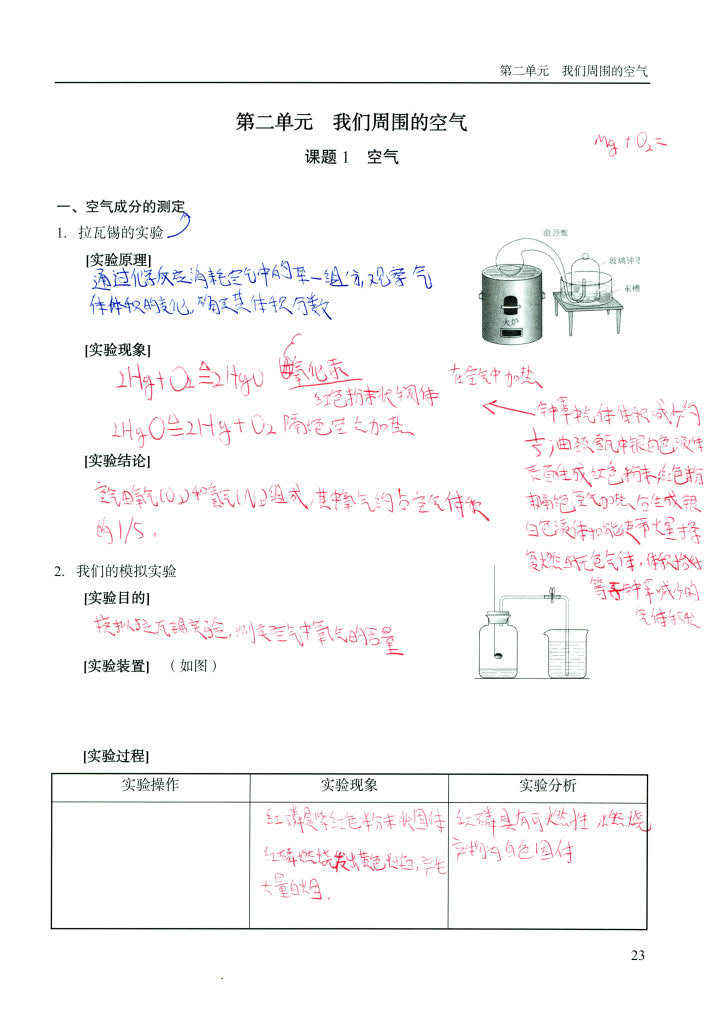 第二单元 我们周围的空气
第二单元 我们周围的空气
Mg + O₂ =
课题 1 空气
一、空气成分的测定
1. 拉瓦锡的实验
曲颈甑
玻璃钟罩
汞槽
火炉
[实验原理]
通过化学反应消耗空气中的某一组分,观察气
体体积的变化,确定其体积分数
[实验现象]
2Hg+O₂≜2HgO 氧化汞
红色粉末状固体
在空气中加热
2HgO≜2Hg+O₂ 隔绝空气加热
钟罩中气体体积减少约
1/5,曲颈甑中银白色液体
表面生成红色粉末,红色粉
末隔绝空气加热后生成银
白色液体和能使带火星木条
复燃的无色气体,体积恰好
等于钟罩减少的
气体体积
[实验结论]
空气由氧气(O₂)和氮气(N₂)组成,其中氧气约占空气体积
的1/5.
2. 我们的模拟实验
[实验目的]
模拟拉瓦锡实验,测定空气中氧气的含量
[实验装置] (如图)
[实验过程]
实验操作 实验现象 实验分析
红磷是紫红色粉末状固体 红磷具有可燃性 燃烧
红磷燃烧发出黄色火焰,产生 产物为白色固体
大量白烟.
23